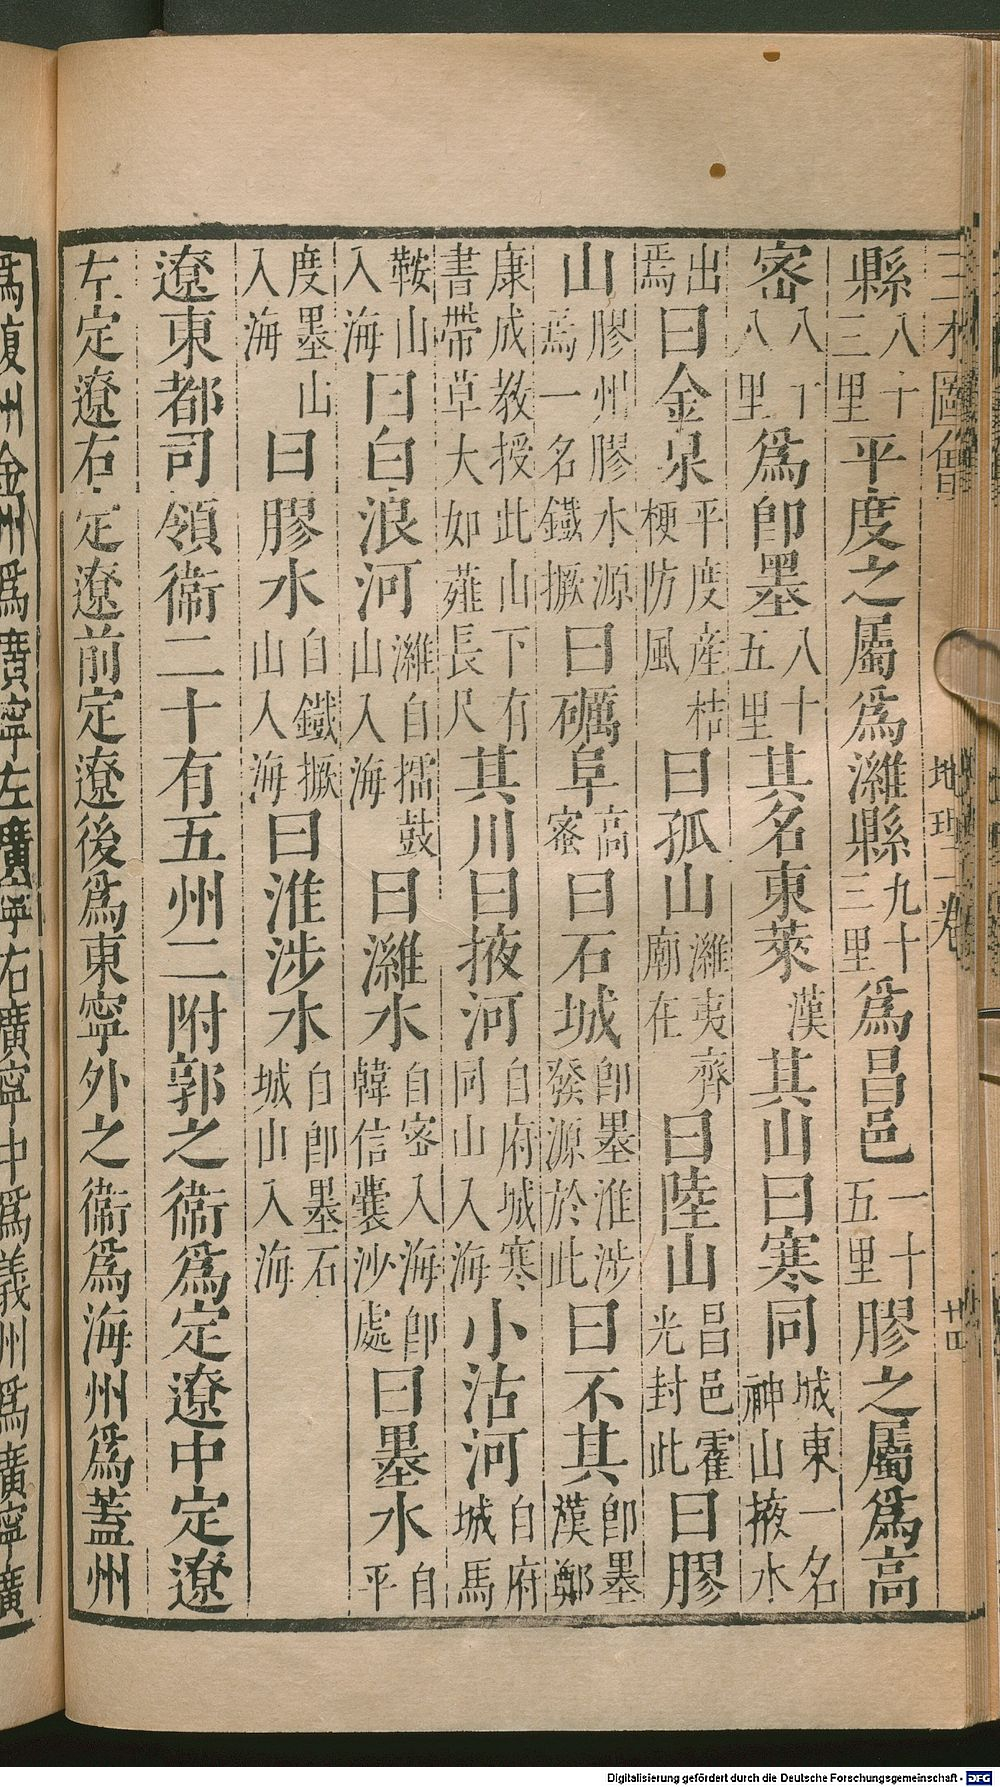 縣八十三里平度之屬爲濰縣九十三里爲昌邑一十五里膠之屬爲高
密八八丁里爲卽墨八十五里其名東萊漢其山曰寒同城東一名神山掖水
出焉曰金泉平度産桔梗防風曰孤山濰夷齊廟在曰陸山昌邑霍光封此曰膠
山膠州膠水源焉一名鐵橛曰礪阜高密曰石城卽墨淮涉發源於此曰不其卽墨漢鄭
康成敎授此山下有書帶草大如薤長尺其川曰掖河自府城寒同山入海小沽河自府城馬
鞍山入海曰白浪河濰自擂鼓山入海曰濰水自密入海卽韓信囊沙處曰墨水自平
度墨山入海曰膠水自鐵橛山入海曰淮涉水自卽墨石城山入海
遼東都司領衞二十有五州二附郭之衞爲定遼中定遼
左定遼右定遼前定遼後爲東寧外之衞爲海州爲蓋州
爲復州金州爲廣寧左廣寧右廣寧中爲義州爲廣寧廣
地理一卷
廿四
Digitalisierung gefördert durch die Deutsche Forschungsgemeinschaft - DFG